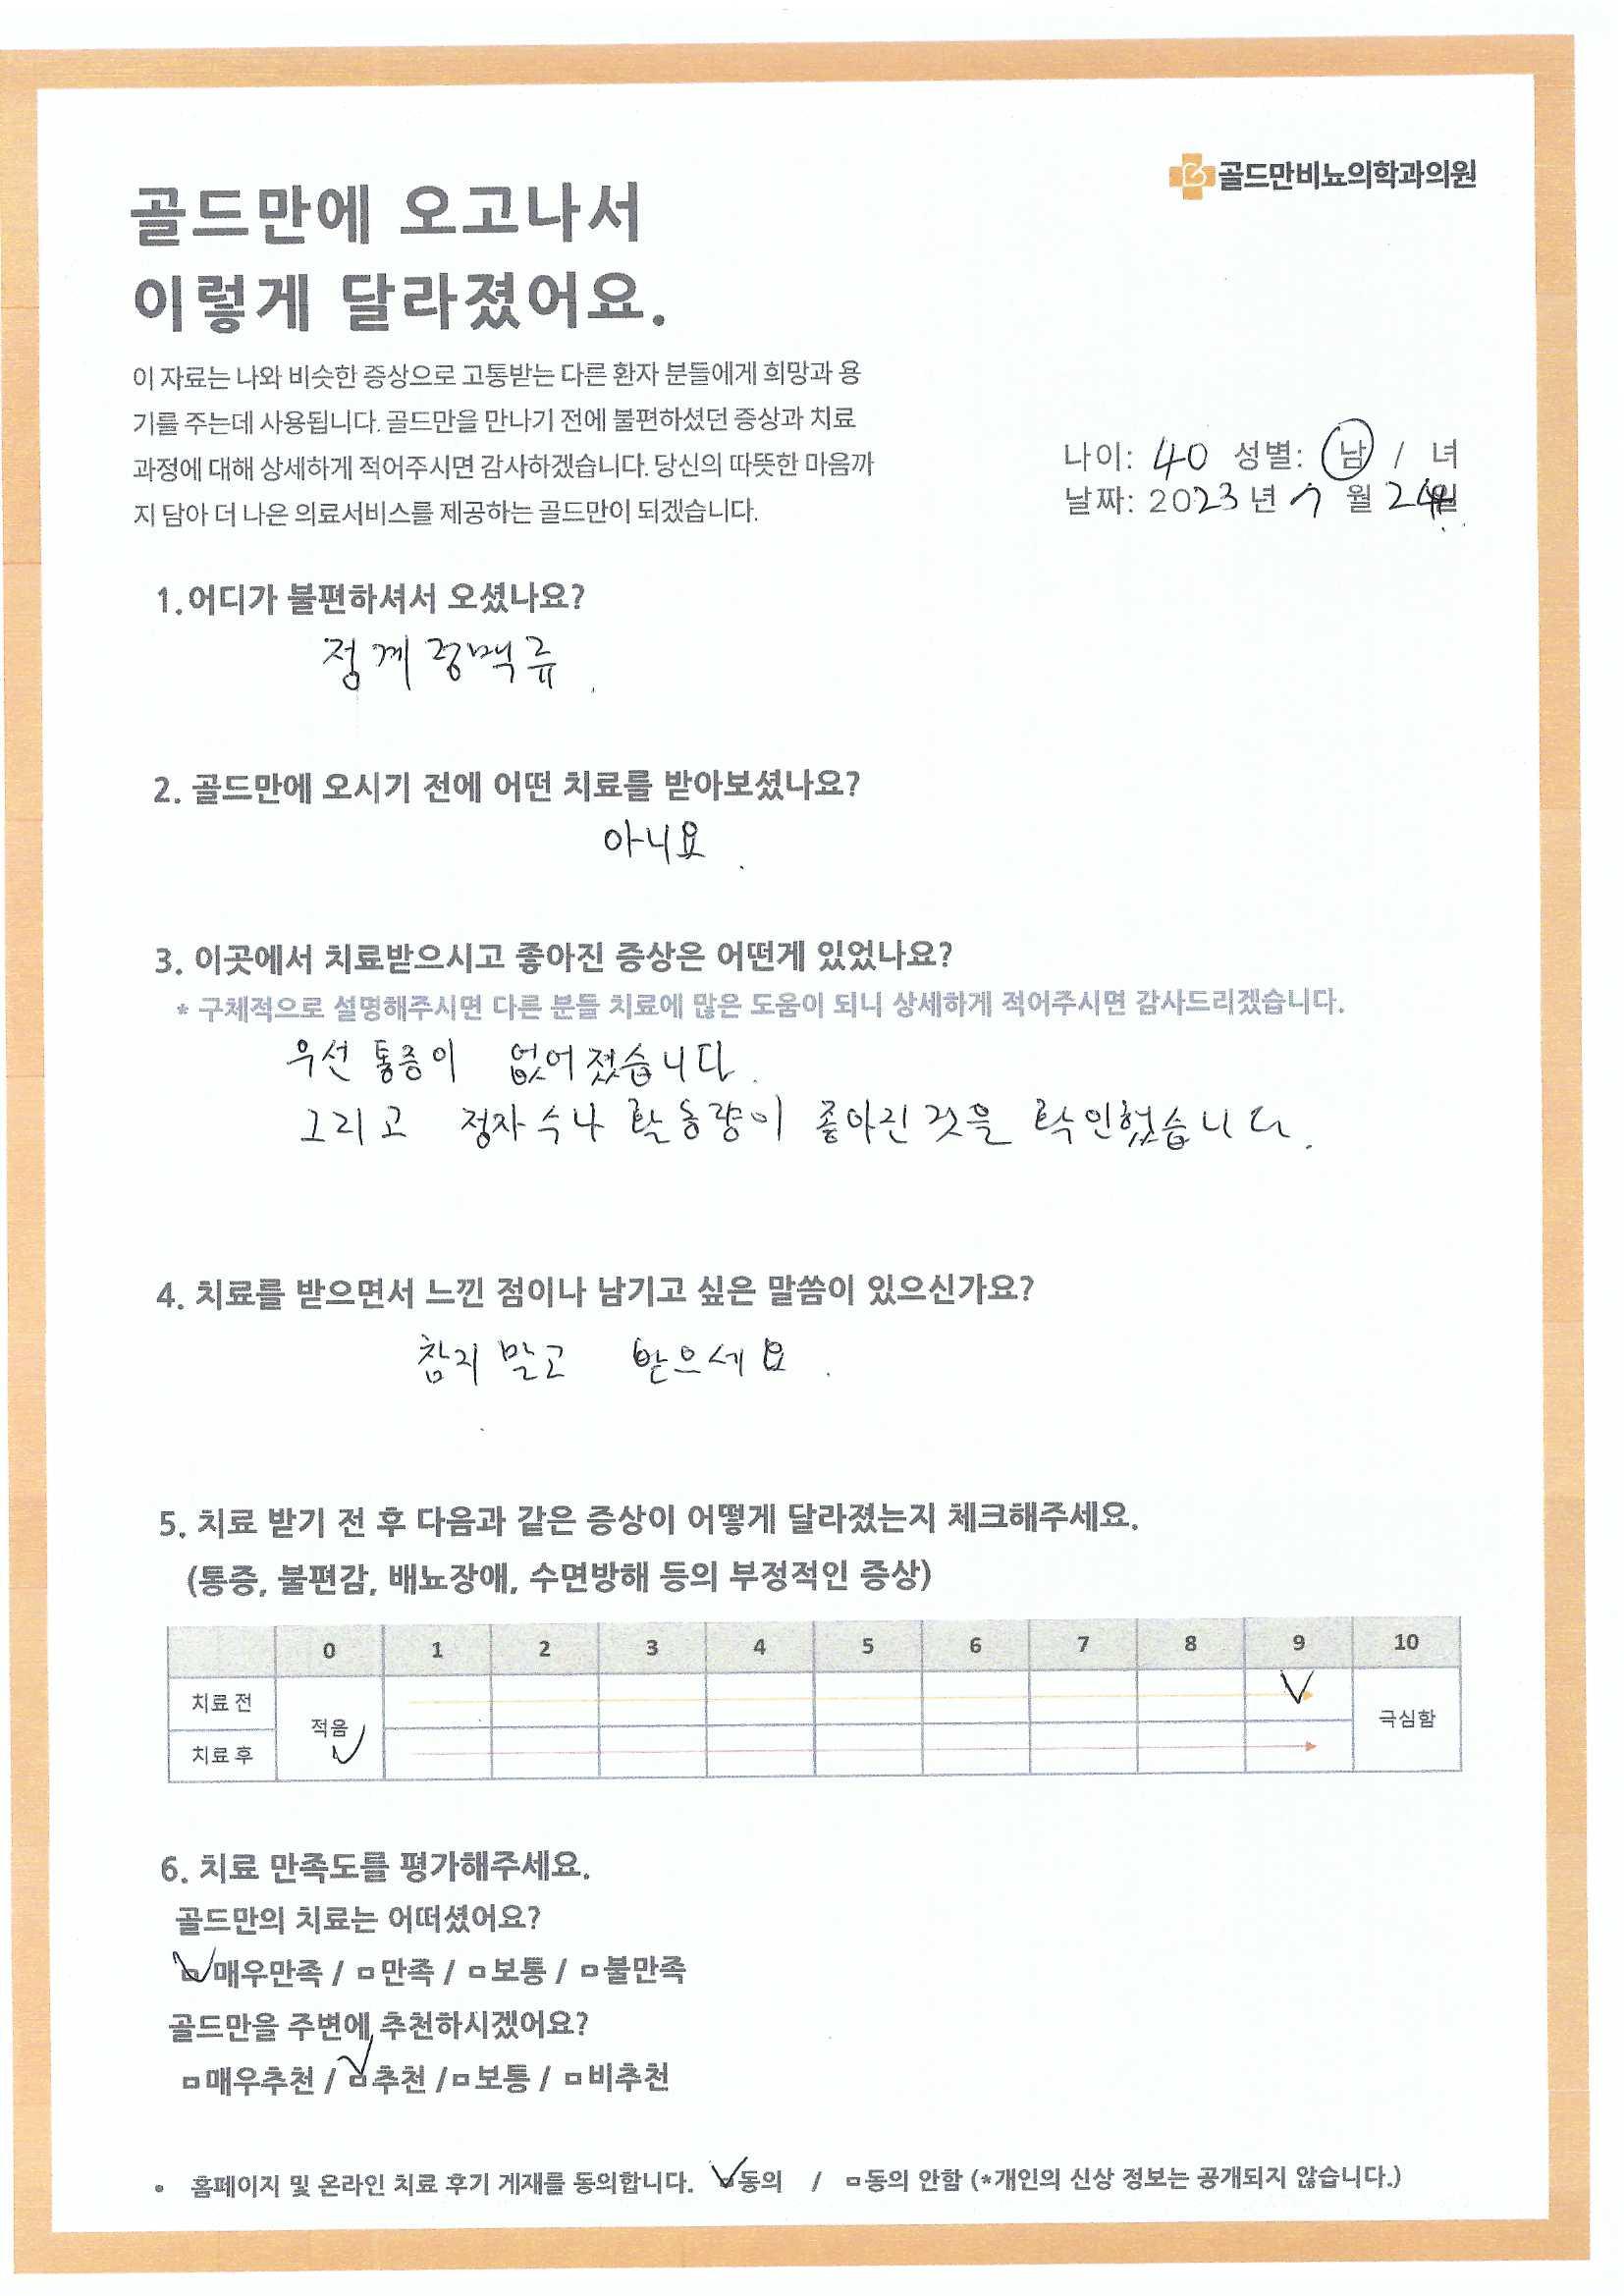 골드만비뇨의학과의원
골드만에 오고나서
이렇게 달라졌어요.
이 자료는 나와 비슷한 증상으로 고통받는 다른 환자 분들에게 희망과 용
기를 주는데 사용됩니다. 골드만을 만나기 전에 불편하셨던 증상과 치료
과정에 대해 상세하게 적어주시면 감사하겠습니다. 당신의 따뜻한 마음까
지 담아 더 나은 의료서비스를 제공하는 골드만이 되겠습니다.
나이: 40 성별: 남 / 녀
날짜: 2023 년 7 월 24일
1. 어디가 불편하셔서 오셨나요?
정계정맥류.
2. 골드만에 오시기 전에 어떤 치료를 받아보셨나요?
아니요.
3. 이곳에서 치료받으시고 좋아진 증상은 어떤게 있었나요?
* 구체적으로 설명해주시면 다른 분들 치료에 많은 도움이 되니 상세하게 적어주시면 감사드리겠습니다.
우선 통증이 없어졌습니다.
그리고 정자 수나 활동량이 좋아진 것을 확인했습니다.
4. 치료를 받으면서 느낀 점이나 남기고 싶은 말씀이 있으신가요?
참지 말고 받으세요.
5. 치료 받기 전 후 다음과 같은 증상이 어떻게 달라졌는지 체크해주세요.
(통증, 불편감, 배뇨장애, 수면방해 등의 부정적인 증상)
0 1 2 3 4 5 6 7 8 9 10
치료 전
적음
극심함
치료 후
6. 치료 만족도를 평가해주세요.
골드만의 치료는 어떠셨어요?
매우만족 / 만족 / 보통 / 불만족
골드만을 주변에 추천하시겠어요?
매우추천 / 추천 / 보통 / 비추천
• 홈페이지 및 온라인 치료 후기 게재를 동의합니다. 동의 / 동의 안함 (*개인의 신상 정보는 공개되지 않습니다.)